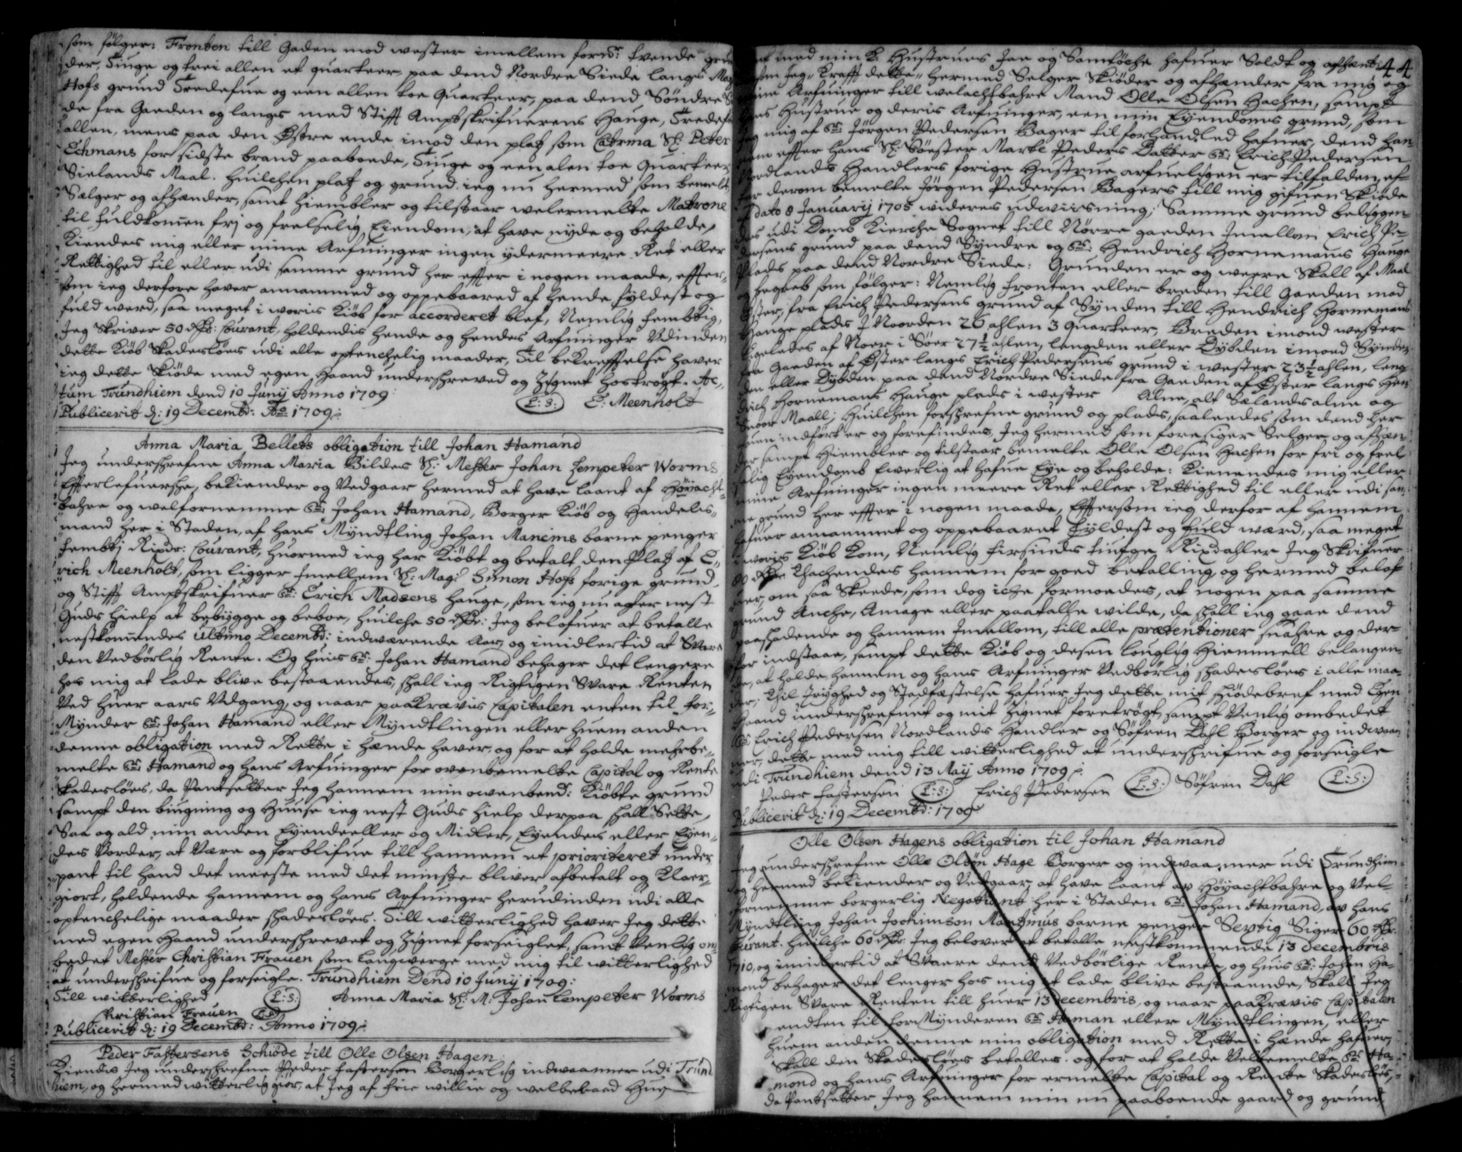 som følger: Fronten till Gaden mod wester imellem forne: tvende
der, Siuge og trei allen et quarteer, paa dend Nordre Siede langs
Hofs grund Tredefue og een allen toe Quarteer, paa dend Søndre
de fra Gaeden og langs med Stifft Ampts skrifuerens Hauge,
allen, mens paa den Østre ende imod den platz som Sl: Peter
Echmans for sidste brand paaboede, Siuge og een alen toe Quarteer
Sielands Maal. Huilchen platz og grund ieg nu hermed som bemelt
Selger og afhender, samt hiembler og tilstaar velermelte Matrone
til fuldkommen frj og frelselig Eiendom, at have nyde og beholde,
Kiendes mig eller mine Arfuinger ingen ydermeere Ret eller
Rettighed til eller udi samme grund her effter i nogen maade, effter-
som ieg derfore haver annammed og oppebaared af hende fyldest og
fuld werd, saa meget i woris kiøb for accorderet blef, Nemlig femtig,
Jeg skriver 50 Rdr: Courant, holdendis hende og hendes Arfuinger
dette kiøb skadesløes udi alle optenchelig maader, Til bekrefftelse haver
ieg dette skiøde med egen Haand underschreved og Zignet hostrøgt. Ac-
tum Trundhiem dend 10 Junij Anno 1709
Publicerit d: 19 Decembr: Ao 1709. L:S: E: Meenholt
Anna Maria Bellets obligation till Johan Hamand
Jeg underschrefne Anna Maria Bildes Sl: Mester Johan Lempeter Worms
Effterlefuersche, bekiender og Vedgaar hermed at have laant af Høyacht-
bahre og welfornemme Sr: Johan Hamand, Borger kiøb og Handels-
mand her i Staden, af hans Myndtling Johan barne penger
femtij Ripdr: Courant, huormed ieg har kiøbt og betalt den Platz af E-
rich Meenholt, som ligger imellem Sl: Magr Simon Hofs forige grund
og Stifft Amptskrifuer Sr: Erich Madsens hauge, som ieg nu agter nest
Guds hielp at bebygge og beboe, huilche 50 Rdr: Jeg belofuer at betalle
nestkommendes ultimo Decembr: indwærende Aar, og imidlertid at Svare
den Vedbørlig Rente. Og huis Sr: Johan Hamand behager det lengere
hos mig at lade blive bestaaendes, skall ieg Rigtigen Svare Renten
Ved huer aars Udgang, og naar paakrævis Capitalen enten til for-
Mynder Sr: Johan Hamand eller Myndtlingen eller huem anden
denne obligation med Rette i Hænde haver, og for at holde mehrbe-
melte Sr: Hamand og hans Arfuinger for ovenbemelte Capital og Rente
skadesløes, da Pantsetter Jeg hannem min ovenbend: kiøbte grund
sampt den biugning og Huuse ieg nest Guds hielp derpaa skall Sette,
Saa og ald min anden Eyendeeller og Midler, Eyendes eller Eyen-
des Vorder, at være og forblifue till hannem et prioriteret under-
pant til Hand det meeste med det minste bliver afbetalt og klaer-
giort, holdende hannem og hans Arfuinger herudinden udi alle
optenchelige maader skadesløes. Till witterlighed haver Jeg dette
med egen Haand underschrevet og Zignet forseiglet, samt venlig om-
bedet Mester Christian Frauen som laugverge med mig til witterlighed
at underschrifue og forseigle. Trundhiem Dend 10 Junij 1709:
Till witterlighed L:S: Anna Maria Sl: M: Johan Lempeter Worms
Kristian Frauen L:S:
Publicerit d: 19 Decembr: Anno 1709.
Peder Fastersens Schiøde till Olle Olsen Hagen
Kiendis Jeg underschrefne Peder Fastersen Borgerlig indwaanner udi Trund
hiem, og hermed witterlig giør, at Jeg af frie willie og welberaad Hug
44
med min K: Hustrues Jae og Samtøche hafuer Soldt og afhendt
Jeg Krafft dette hermed Selger Skiøder og afhender fra mig og
mine Arfuinger till welachtbahre Mand Olle Olsen Hachen, sampt
hans Hustrue og deris Arfuinger, een min Eyendoms grund, som
mig af Sr: Jørgen Pedersen Bager til forhandled hafuer, dend han
effter hans Sl: Søster Marte Peders Datter Sr: Erich Pedersen
Nordlands Handlers forige Hustrue arfueligen er tilfalden, ef-
ter derom bemelte Jørgen Pedersen Bagers till mig gifuen Skiøde
dato 8 Januarij 1705 widere udwiisning; Samme grund beliggen
des udi Doms kierche Sognet till Nørre gaeden Imellem Erich Pe-
dersens grund paa dend Syndre og Sr: Hendrich Hornemans Hauge
Plads paa dend Nordre Siede: Grunden er og weere skall af Maal
og hegtet som følger: Nemlig Fronten eller breden till Gaeden mod
Øster, fra Erich Pedersens grund af Synden till Hendrich Hornemans
Hauge plads i Noorden 26 ahlen 3 quarteer, Breden imod wester
ligeledes af Noer i Sør 27½ ahlen, lengden eller Dybden imod Synder
fra Gaeden af Øster langs Erich Pedersens grund i wester 23½ ahlen, leng-
den eller Dybden paa dend Nordre Siede fra Gaeden af Øster langs Hen-
drich Hornemans Hauge plads i wester Alne, alt Sælands alne og
Snoor Maall; Huilchen forschrefne grund og plads, saaleedes som dend her
ofuen indført er og forefindes, Jeg hermed som forsiger Selger og afhen-
der sampt Hiembler og tilstaar bemelte Olle Olsen Hachen for fri og frel-
selig Eyendomb Ewerlig at hafue Eye og beholde: Kienendes mig eller
mine Arfuinger ingen meere Ret eller Rettighed til eller udi sam-
me grund her effter i nogen maade, Effterson ieg derfor af hannem
hafuer annammet og oppebaaret fyldest og fuld wærd, saa meget
i woris kiøb kom, Nemlig firsinds tiufge Rixdahler Jeg skrifuer
80 Rdr Thachendes hannem for goed betalling og hermed belof-
uer, om saa Skeede, som dog iche formoedes, at nogen paa samme
grund Anche, Amage eller paatalle wilde, da skall ieg gaae dend
paaschadende og hannem Imellom, till alle prætentioner suahre og der-
for indstaae, sampt dette kiøb og desen louglig Hiemmell belangen-
de, at holde hannem og hans Arfuinger Vedbørlig skadesløes i alle maa-
der; Till trygghed og Stadfæstelse hafuer Jeg dette mit schiødebref med Egen
Haand underschrefuet og mit Zignet foretrøgt, sampt Venlig ombedet
Sr: Erich Pedersen Nordlands Handler og Søfren Dahl Borger og indwaan-
ner, dette med mig till witterlighed at underschrifue og forseigle
udi Trundhiem dend 13 Maij Anno 1709.
Peder Fastersen L:S: Erich Pedersen L:S: Søfren Dahl L:S:
Publicerit d: 19 Decembr: 1709
Olle Olsen Hagens obligation til Johan Hamand
Jeg underschrefne Olle Olsøn Hage Borger og indwaanner udi Trundhiem
hermed bekiender og Vedgaar at have laant av Høyachtbahre og Vel-
fornemme borgerlig Negotiant her i Staden Sr: Johan Hamand, av hans
Myndtling Johan Joehimson barne penger Sextig Siger 60 Rdr
Courant. huilche 60 Rdr. Jeg belover at betalle nestkommende 13 decembris
1710, og imidlertid at Svaere dend Vedbørlige Rente, og huis Sr: Johan Ha-
mand behager det lenger hos mig at lade blive bestaaende, Skall Jeg
Rigtigen Svare Renten till huer 13 decembris, og naar paakrævis Capitalen
endten til forMynderen Sr: Haman eller Myndtlingen, eller
huem anden denne min obligation med Rette i hænde hafuer,
skall den skadesløes betalles. og for at holde Velbemelte Sr: Ha-
mond og hans Arfuinger for ermelte Capital og Rente skadesløs,
da Pantsetter Jeg hannem min nu paaboende gaard og grund